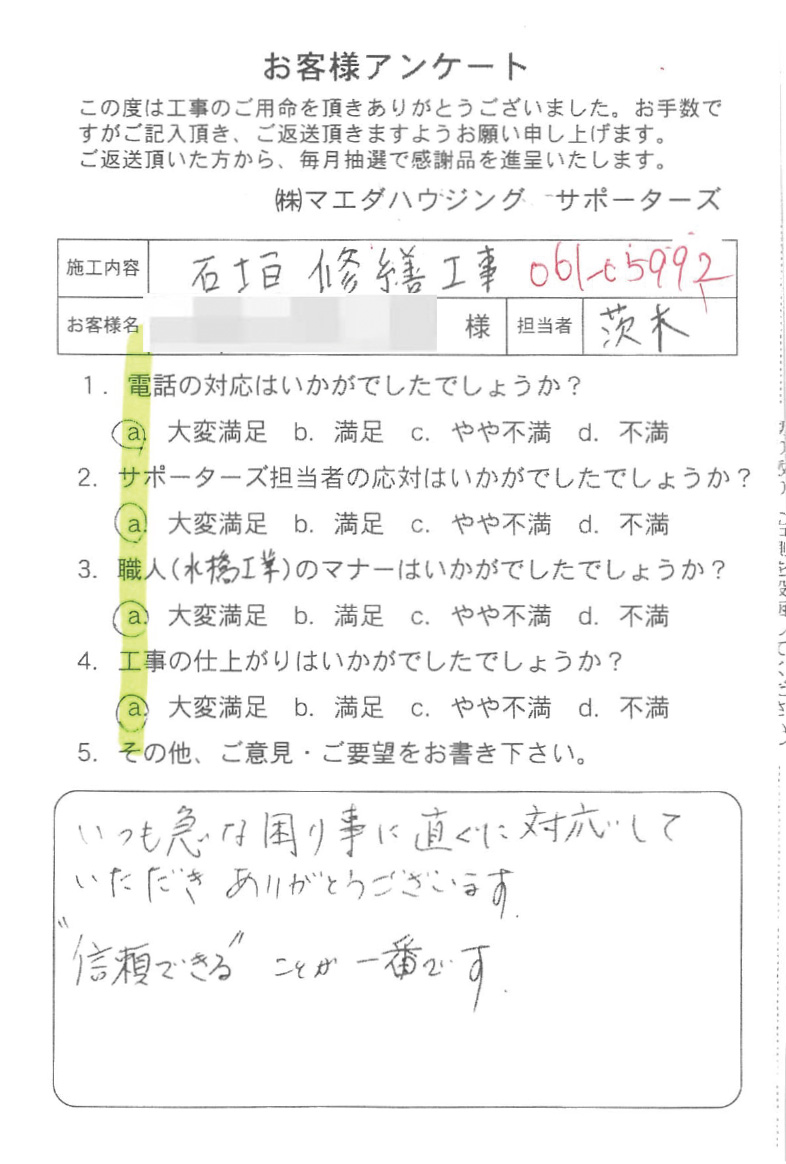 お客様アンケート
この度は工事のご用命を頂きありがとうございました。お手数で
すがご記入頂き、ご返送頂きますようお願い申し上げます。
ご返送頂いた方から、毎月抽選で感謝品を進呈いたします。
㈱マエダハウジング サポーターズ
施工内容 石垣修繕工事 061-c5992
お客様名 様 担当者 茨木
1. 電話の対応はいかがでしたでしょうか？
a. 大変満足 b. 満足 c. やや不満 d. 不満
2. サポーターズ担当者の応対はいかがでしたでしょうか？
a. 大変満足 b. 満足 c. やや不満 d. 不満
3. 職人(水橋工業)のマナーはいかがでしたでしょうか？
a. 大変満足 b. 満足 c. やや不満 d. 不満
4. 工事の仕上がりはいかがでしたでしょうか？
a. 大変満足 b. 満足 c. やや不満 d. 不満
5. その他、ご意見・ご要望をお書き下さい。
いつも急な困り事に直ぐに対応して
いただきありがとうございます.
"信頼できる" ことが一番です.